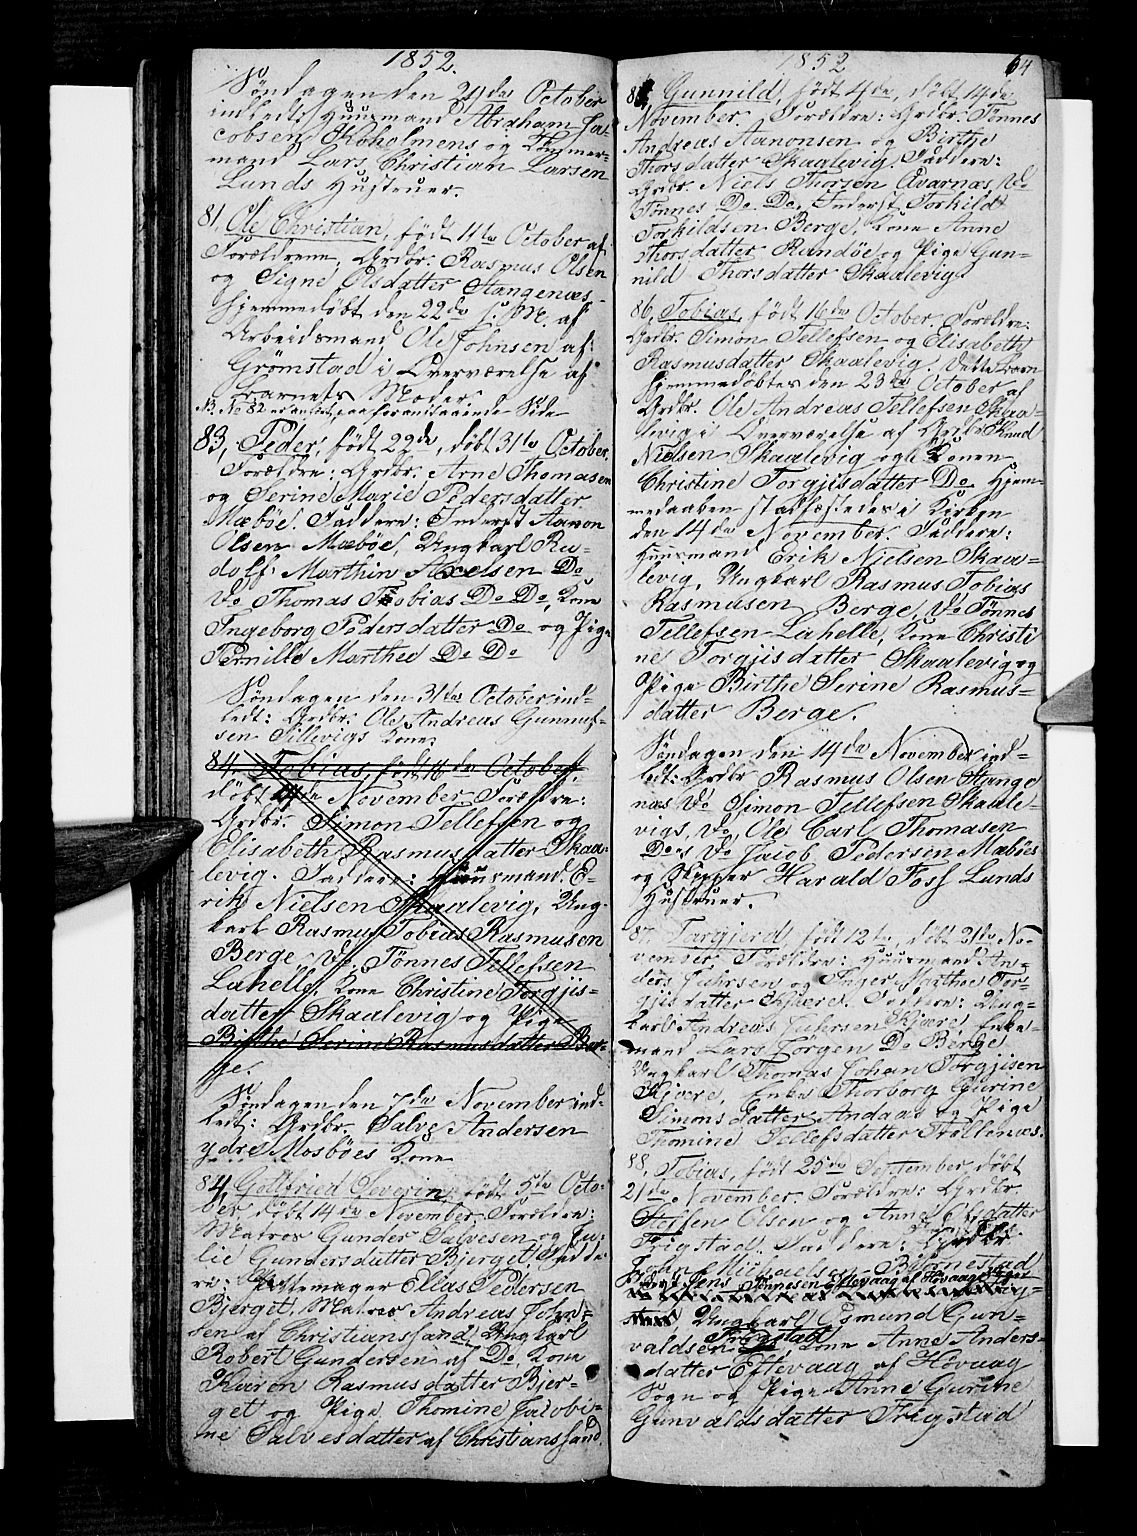 1852.
Søndagen den 24de October
indledt: Huusmand Abraham Ja-
cobsen Koholmens og Tømmer-
mand Lars Christian Larsen
Lunds Hustruer.
81, Ole Christian, født 11te October af
Forældrene, Grdbr. Rasmus Olsen
og Signe Olsdatter Stangenæs.
Hjemmedøbt den 22de s. M. af
Arbeidsmand Ole Johnsen af
Grømstad i Overværelse af
Barnets Moder.
NB. No 82 er anført paa foranstaaende Side
83, Peder, født 22de, døbt 31te October.
Forældre: Grdbr. Arne Thomasen
og Serine Marie Pedersdatter
Mæbøe. Faddere: Inderst Aanon
Olsen Mæbøe, Ungkarl Ru-
dolf Marthin Axelsen Do
Do Thomas Tobias Do Do, Kone
Ingeborg Pedersdatter Do og Pige
Pernille Marthee Do Do
Søndagen den 31te October ind-
ledt: Grdbr. Ole Andreas Gunnuf-
sen Sillevigs Kone.
84. Tobias, født 16de October,
døbt 14de November. Forældre:
Grdbr. Simon Tellefsen og
Elisabeth Rasmusdatter Skaa-
levig. Faddere: Huusmand E-
rik Nielsen Skaalevig, Ung-
karl Rasmus Tobias Rasmusen
Berge, Do Tønnes Tellefsen
Lahelle, Kone Christine Torgjis-
datter Skaalevig og Pige
Birthe Serine Rasmusdatter Ber-
ge.
Søndagen den 7de November ind-
ledt: Grdbr. Salve Andersen
ydre Mosbøes Kone
84, Gottfried Severin, født 5te Octo-
ber døbt 14de November. Forældre:
Matros Gunder Salvesen og Ju-
lie Gundersdatter Bjerget. Fadde-
re: Pottemager Ellas Pedersen
Bjerget, Matros Andreas John-
sen af Christianssand, Ungkarl
Robert Gundersen af Do, Kone
Karen Rasmusdatter Bjer-
get og Pige Thomine Jacobi-
ne Salvesdatter af Christianssand.
1852
64
85, Gunnild, født 4de, døbt 14de
November. Forældre: Grdbr. Tønnes
Andreas Aanonsen og Birthe
Thorsdatter Skaalevig. Faddere:
Grdbr. Niels Thorsen Qvarnæs, Do
Tønnes Do Do, Inderst Torkild
Torkildsen Berge, Kone Anne
Thorsdatter Randøe og Pige Gun-
nild Thorsdatter Skaalevig
86, Tobias, født 16de October. Forældre:
Grdbr. Simon Tellefsen og Elisabeth
Rasmusdatter Skaalevig. Dette Barn
hjemmedøbtes den 23de October af
Grdbr. Ole Andreas Tellefsen Skaa-
levig i Overværelse af Grdbr Knud
Nielsen Skaalevig og Konen
Christine Torgjisdatter Do. Hjem-
medaaben stadfæstedes i Kirken
den 14de November. Faddere:
Huusmand Erik Nielsen Skaa-
levig, Ungkarl Rasmus Tobias
Rasmusen Berge, Do Tønnes
Tellefsen Lahelle, Kone Christi
ne Torgjisdatter Skaalevig og
Pige Birthe Serine Rasmus-
datter Berge.
Søndagen den 14de November ind-
ledt: Grdbr Rasmus Olsen Stange
næs, Do Simon Tellefsen Skaale-
vigs, Do Ole Carl Thomasen
Do's Do Jacob Pedersen Mæbøes
og Skipper Harald Foss Lunds
Hustruer.
87. Targjerd, født 12te, døbt 21de No-
vember. Forældre: Huusmand An-
ders Juhrsen og Inger Mathea Tor-
gjisdatter Kjære. Faddere: Ung-
karl Andreas Juhrsen Kjære, Enke-
mand Lars Jørgen Do Berge
Ungkarl Thomas Johan Torgjisen
Kjære, Enke Thorborg Gurine
Simonsdatter Andaas og Pige
Thomine Tellefsdatter Trællenæs.
88, Tobias, født 25de September, døbt
21de November. Forældre: Grdbr.
Steffen Olsen og Anne datter
Trigstad. Faddere:
John Michaelsen Bjørnestad
Jens Tømesen Eftevaag af Høvaag
Ungkarl Osmund Gun-
valdsen Trigstad, Kone Anne Anders-
datter Eftevaag af Høvaag
Sogn og Pige Anne Gurine
Gunvaldsdatter Trigstad